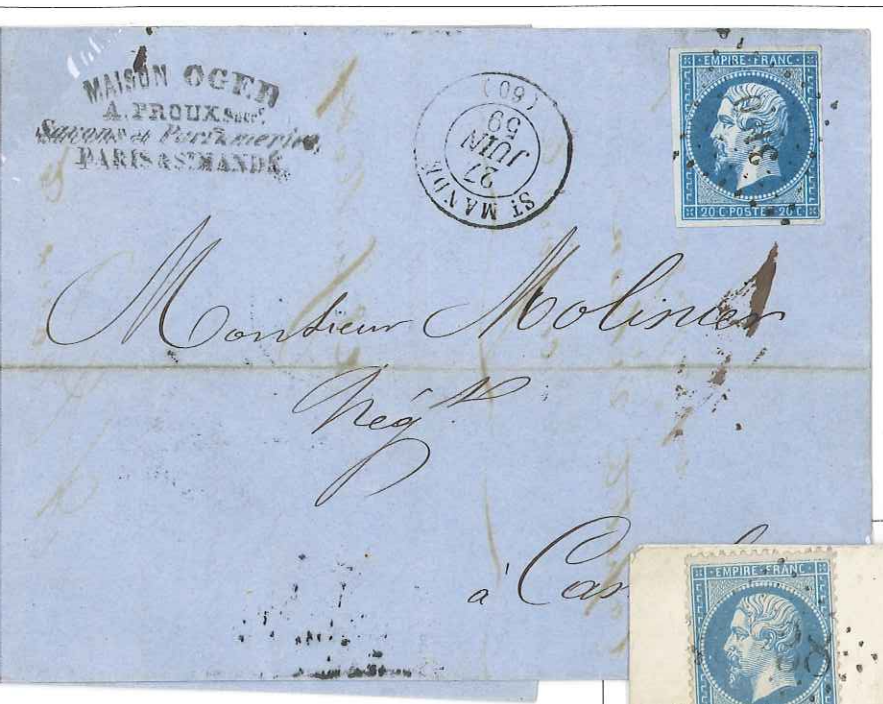 MAISON OGER
A. PROUX Succr.
Savons et Parfumeries,
PARIS & ST MANDÉ.
ST MANDÉ
27
JUIN
59
(60)
EMPIRE FRANC
20 C POSTE 20 C
Monsieur Molinier
Négt
à Cas
EMPIRE FRANC
28